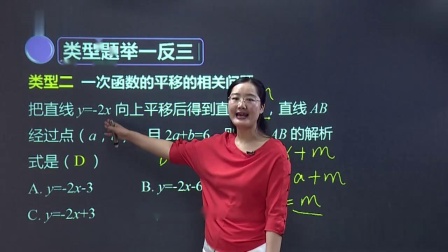 类型题举一反三
类型二 一次函数的平移的相关问
把直线 y=-2x 向上平移后得到直 直线 AB
经过点（a, 且 2a+b=6 AB 的解析
式是（D）
A. y=-2x-3 B. y=-2x-6
C. y=-2x+3
+m
a+m
=m